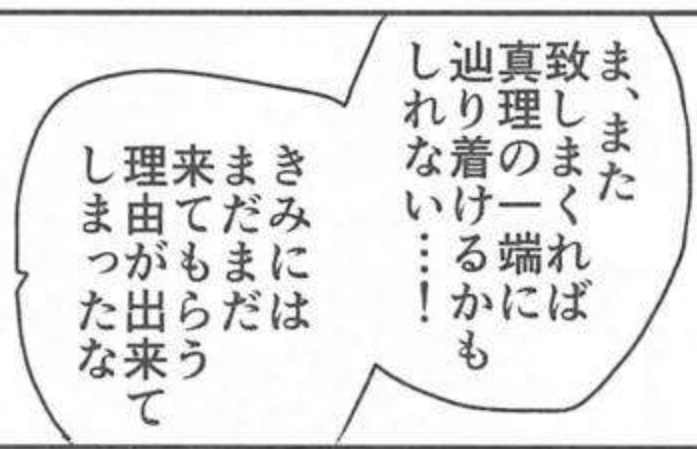 ま、また
致しまくれば
真理の一端に
辿り着けるかも
しれない…！
きみには
まだまだ
来てもらう
理由が出来て
しまったな